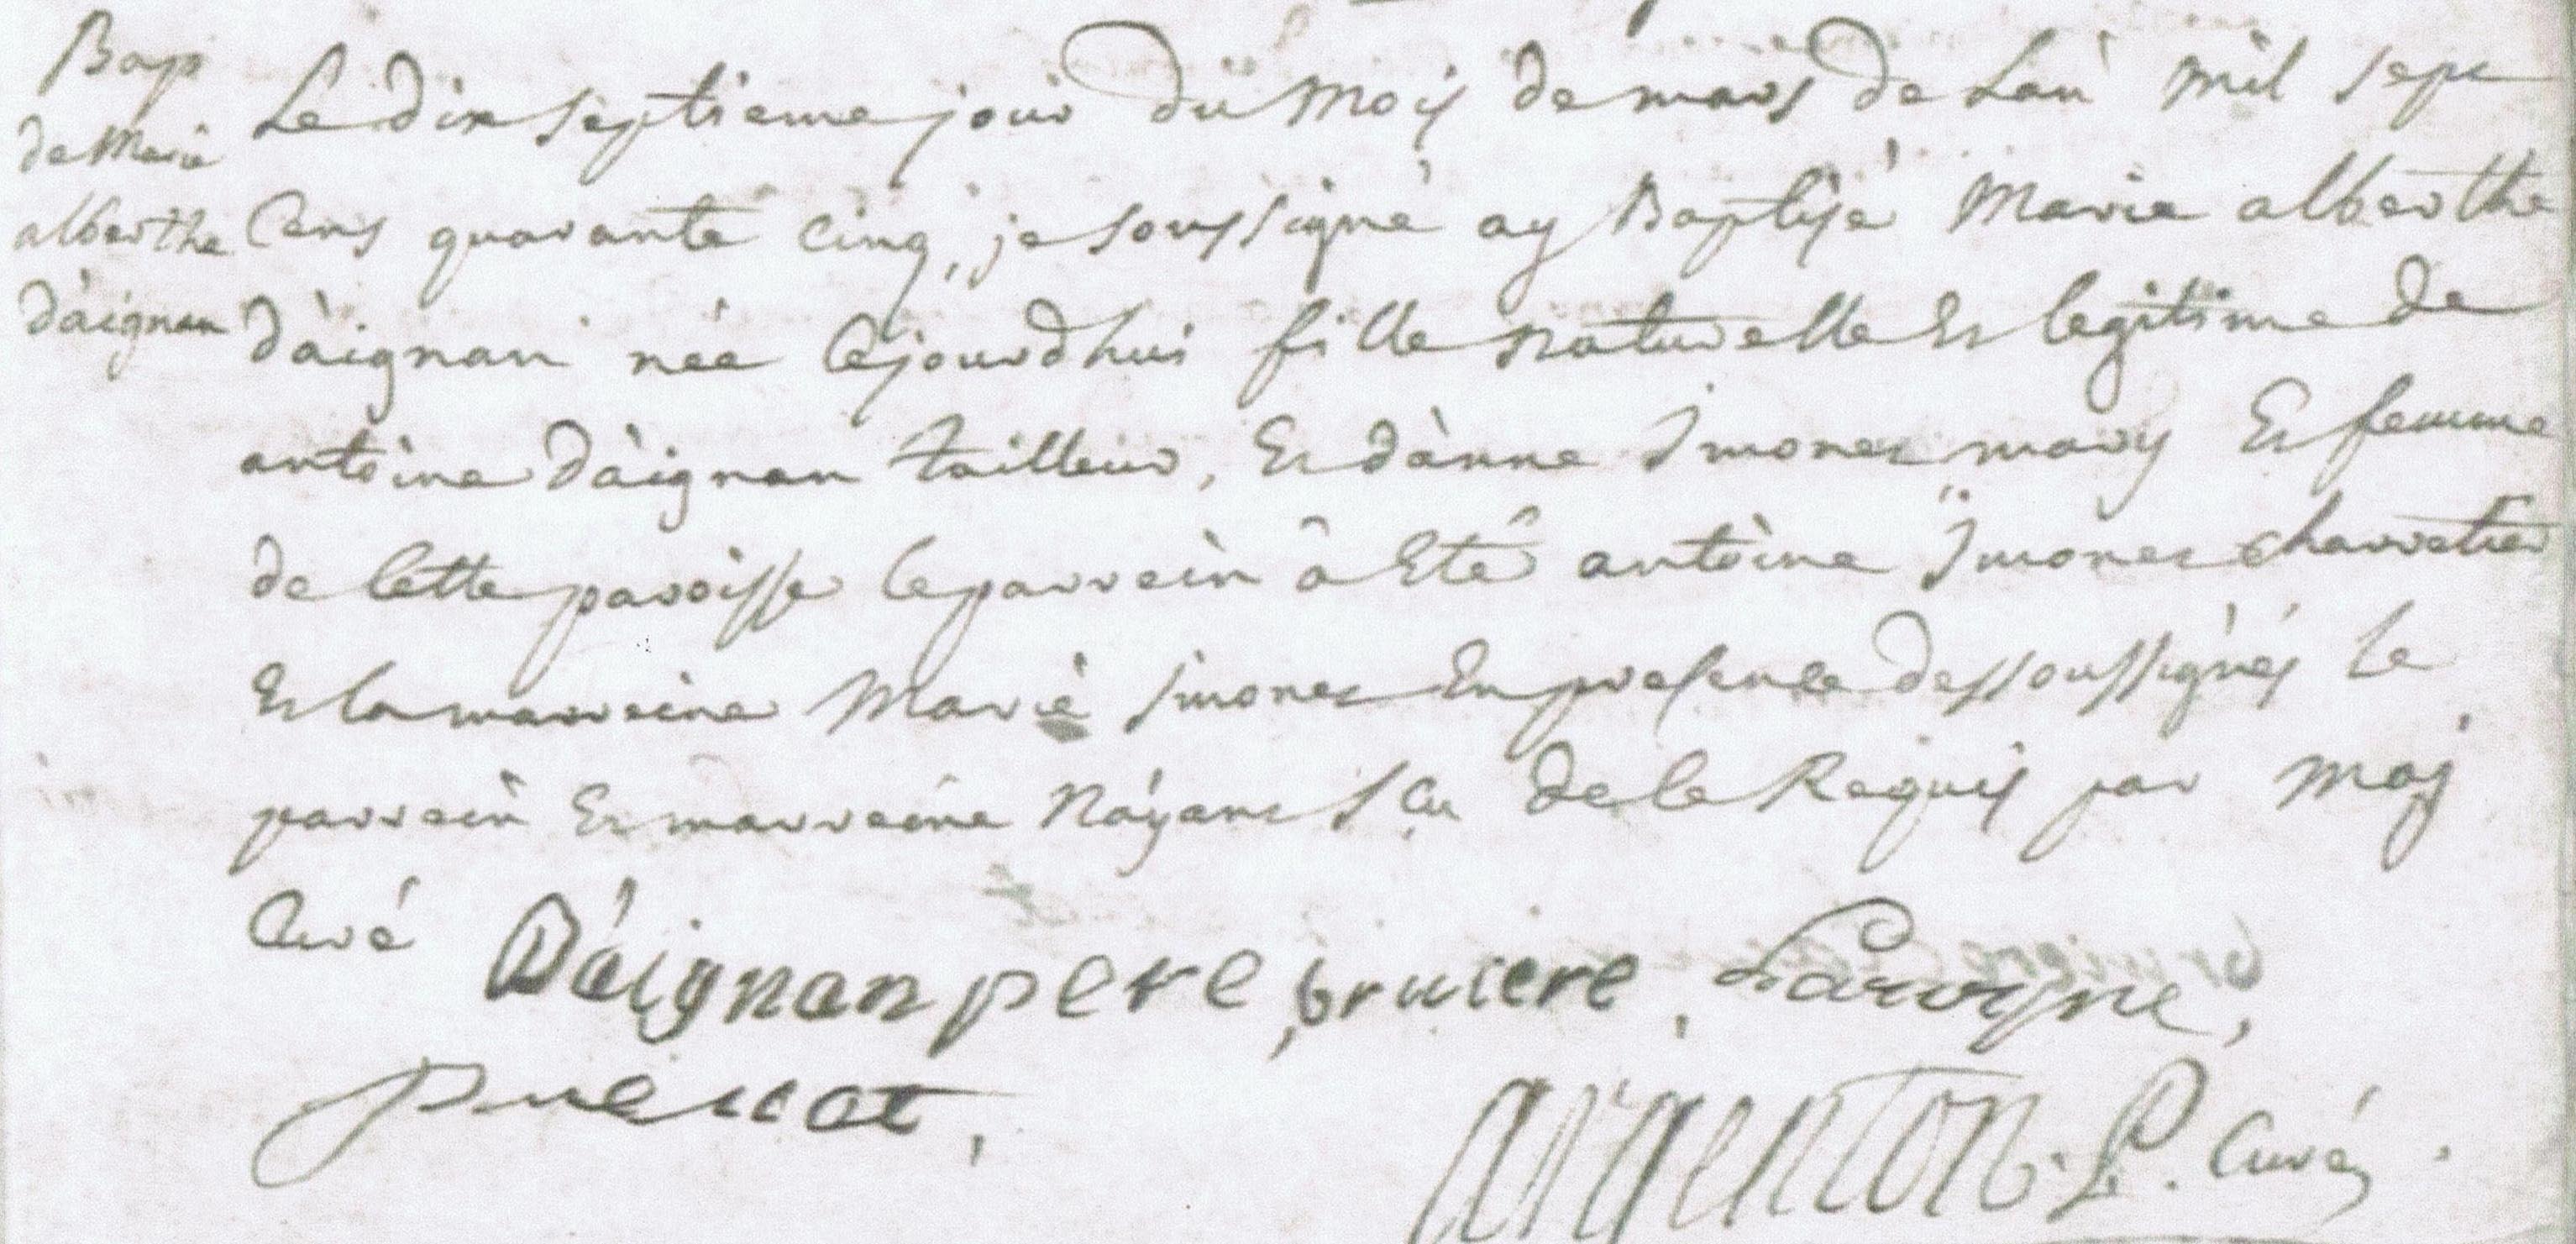 Bap
de Marie
alberthe
d'àignan
Le dix septieme jour du mois de mars de Lan mil sept
Cens quarante Cinq, je soussigné ay Baptisé Marie alberthe
d'àignan née Cejourdhui fille naturelle Et legitime de
antoine d'àignan tailleur, Et d'ànne Imonet mary Et femme
de Cette paroisse le parrein â Eté antoine Imonet charretier
Et la marreine Marie imonet En presence des soussignés le
parrein Et marreine N'áyant sçu de ce Requis par moy
Curé
D'áignan pere, bruiere,
pueuat,
argenton. P. Curé.